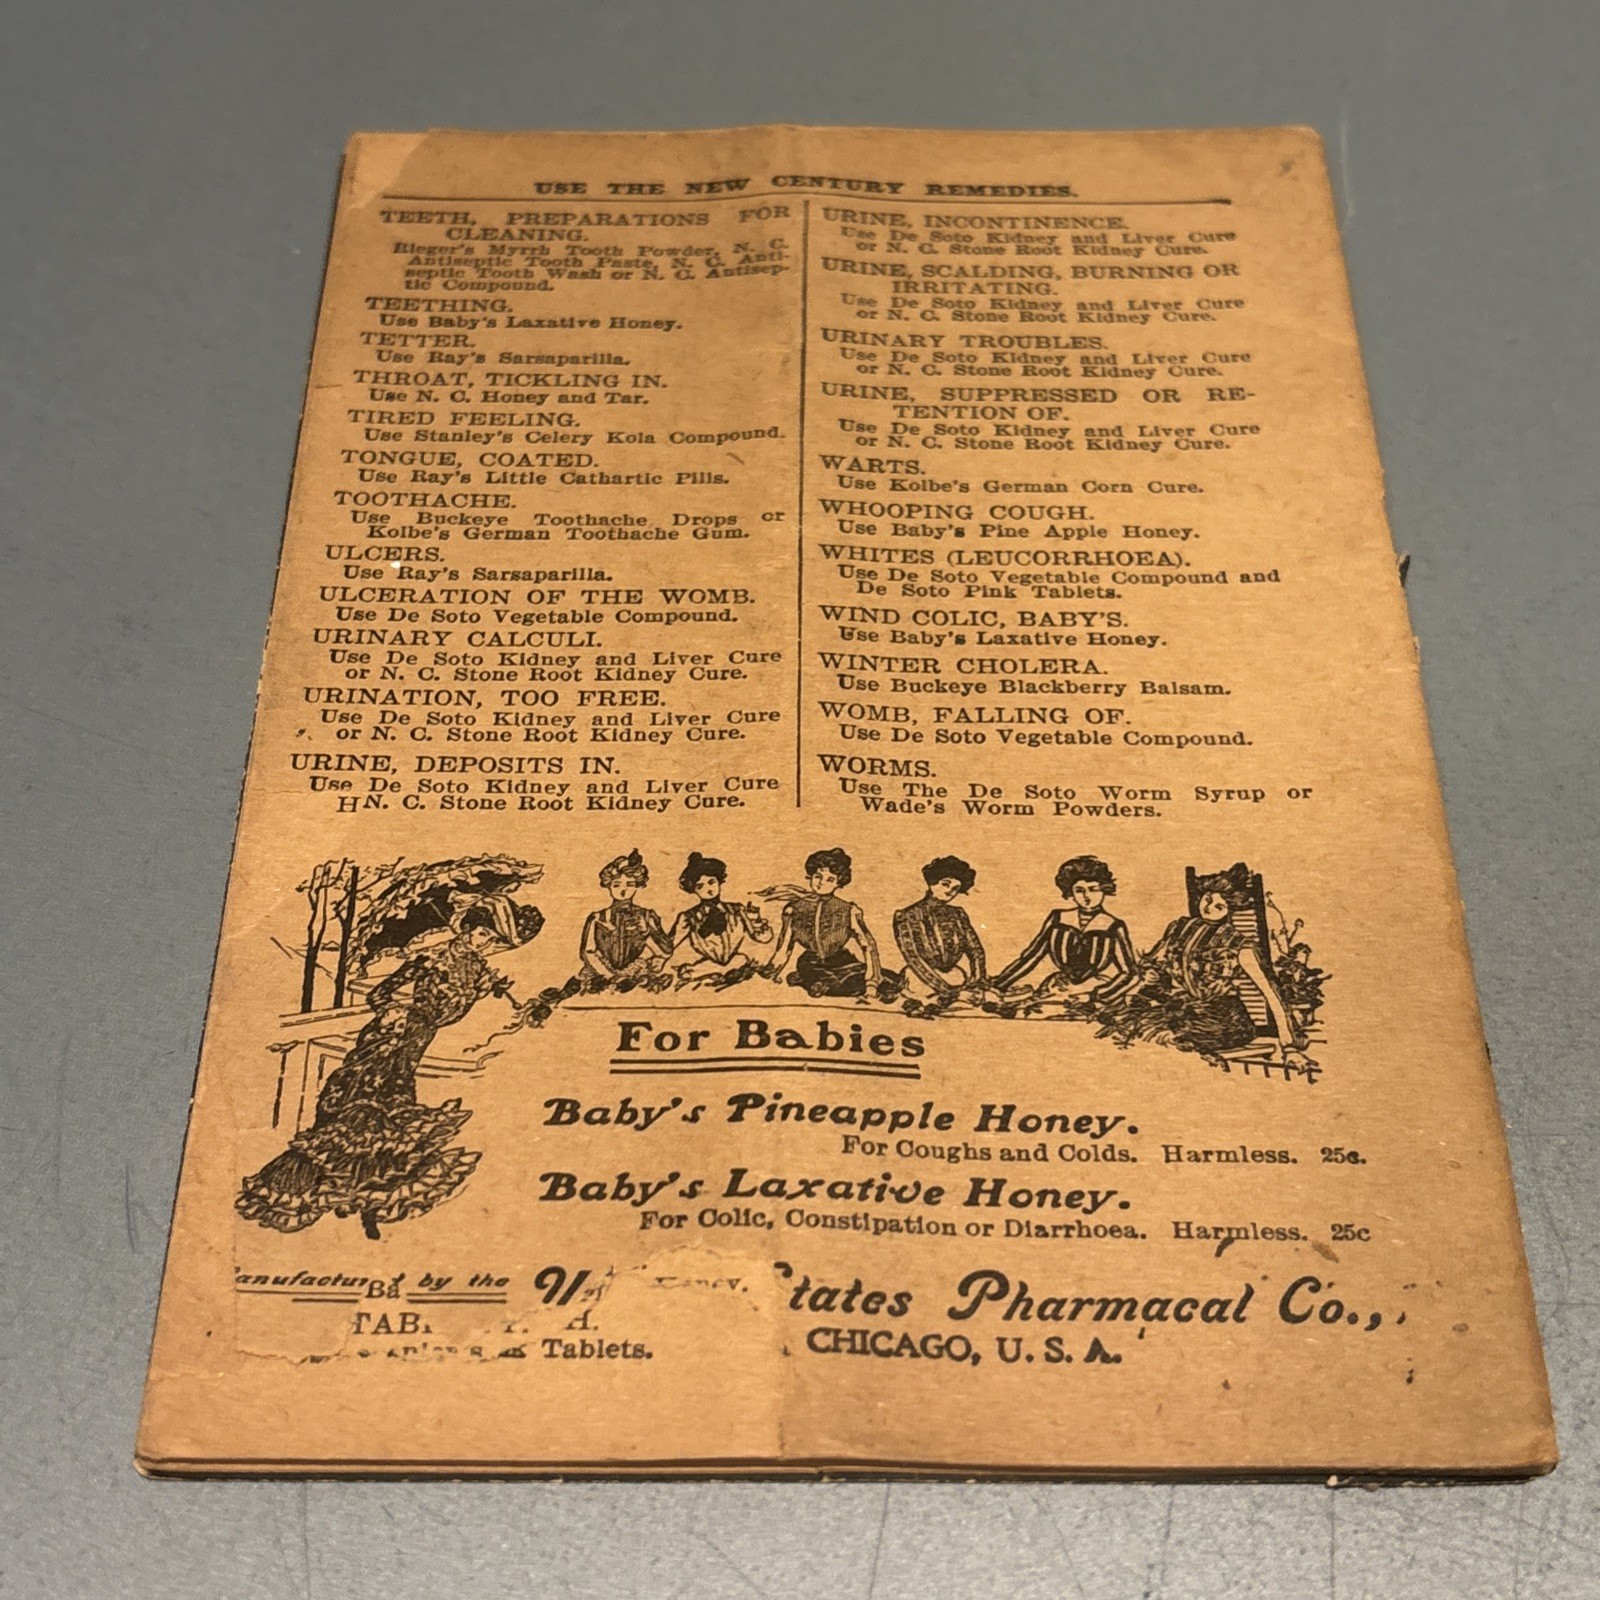 USE THE NEW CENTURY REMEDIES.
TEETH, PREPARATIONS FOR
CLEANING.
Rieger's Myrrh Tooth Powder, N. C.
Antiseptic Tooth Paste, N. C. Anti-
septic Tooth Wash or N. C. Antisep-
tic Compound.
TEETHING.
Use Baby's Laxative Honey.
TETTER.
Use Ray's Sarsaparilla.
THROAT, TICKLING IN.
Use N. C. Honey and Tar.
TIRED FEELING.
Use Stanley's Celery Kola Compound.
TONGUE, COATED.
Use Ray's Little Cathartic Pills.
TOOTHACHE.
Use Buckeye Toothache Drops or
Kolbe's German Toothache Gum.
ULCERS.
Use Ray's Sarsaparilla.
ULCERATION OF THE WOMB.
Use De Soto Vegetable Compound.
URINARY CALCULI.
Use De Soto Kidney and Liver Cure
or N. C. Stone Root Kidney Cure.
URINATION, TOO FREE.
Use De Soto Kidney and Liver Cure
or N. C. Stone Root Kidney Cure.
URINE, DEPOSITS IN.
Use De Soto Kidney and Liver Cure
H N. C. Stone Root Kidney Cure.
URINE, INCONTINENCE.
Use De Soto Kidney and Liver Cure
or N. C. Stone Root Kidney Cure.
URINE, SCALDING, BURNING OR
IRRITATING.
Use De Soto Kidney and Liver Cure
or N. C. Stone Root Kidney Cure.
URINARY TROUBLES.
Use De Soto Kidney and Liver Cure
or N. C. Stone Root Kidney Cure.
URINE, SUPPRESSED OR RE-
TENTION OF.
Use De Soto Kidney and Liver Cure
or N. C. Stone Root Kidney Cure.
WARTS.
Use Kolbe's German Corn Cure.
WHOOPING COUGH.
Use Baby's Pine Apple Honey.
WHITES (LEUCORRHOEA).
Use De Soto Vegetable Compound and
De Soto Pink Tablets.
WIND COLIC, BABY'S.
Use Baby's Laxative Honey.
WINTER CHOLERA.
Use Buckeye Blackberry Balsam.
WOMB, FALLING OF.
Use De Soto Vegetable Compound.
WORMS.
Use The De Soto Worm Syrup or
Wade's Worm Powders.
For Babies
Baby's Pineapple Honey.
For Coughs and Colds. Harmless. 25c.
Baby's Laxative Honey.
For Colic, Constipation or Diarrhoea. Harmless. 25c
by the tates Pharmacal Co.,
CHICAGO, U. S. A.
Tablets.